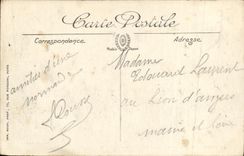 Carte Postale
Correspondance
Adresse
amitiés d'une
normande
Madame
Edouard Laurent
au Lion d'angers
maine et Loire